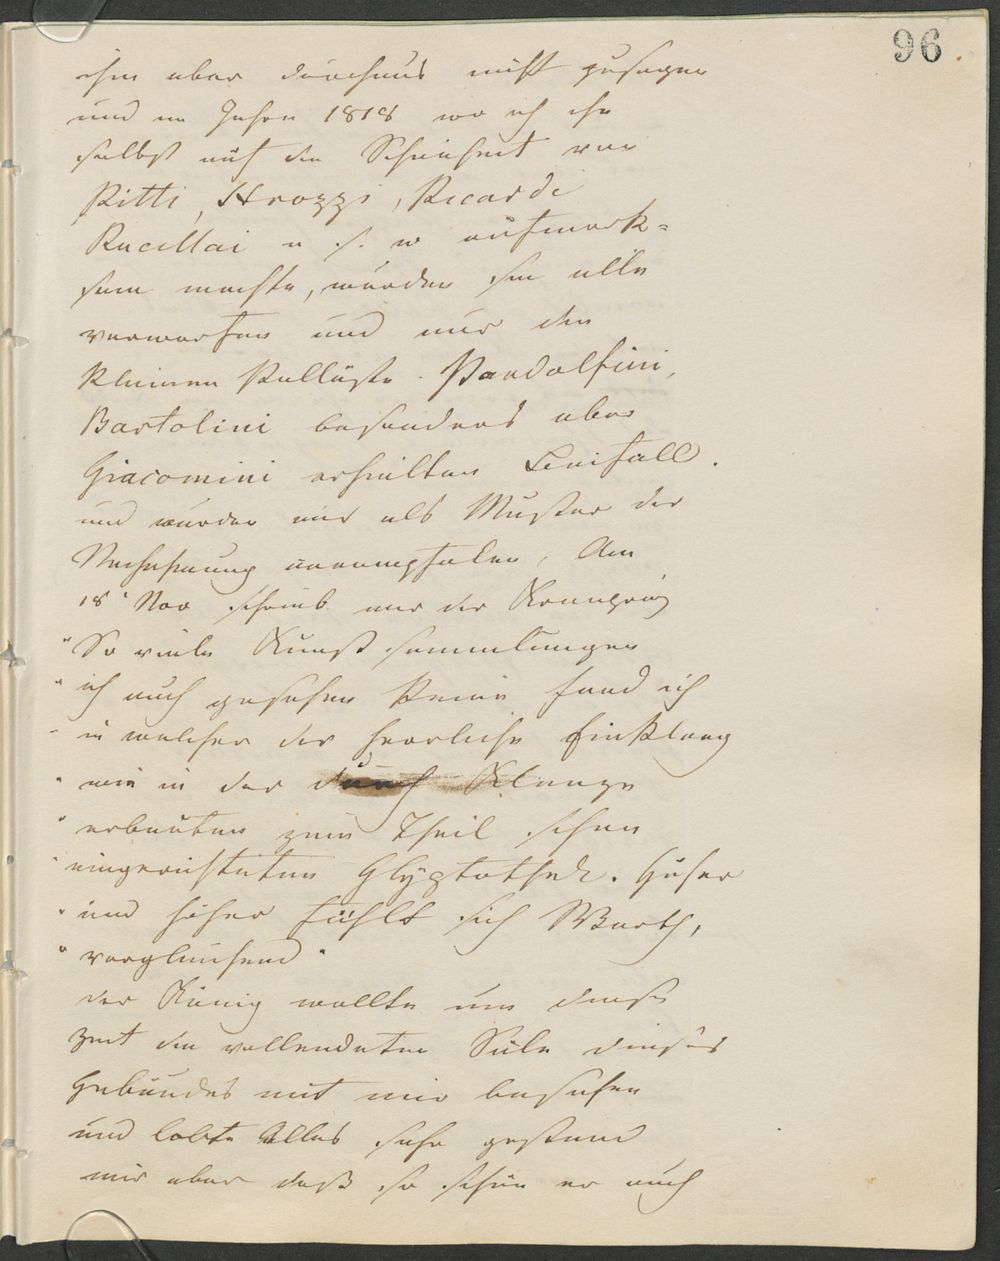 96.
ihm aber durchaus nicht zusagen
und im Jahre 1818 wo ich ihn
selbst auf die Schönheit von
Pitti, Strozzi, Ricardi
Rucellai u. s. w aufmerk=
sam machte, wurden sie alle
verworfen und nur die
kleinen Palläste. Pandolfini,
Bartolini besonders aber
Giacomini erhielten Beifall.
und wurden mir als Muster der
Nachahmung anempfolen, Am
18 Nov schrieb mir der Kronprinz
"So viele Kunst sammlungen
" ich auch gesehen keine fand ich
" in welcher der herrliche Einklang
" wie in der durch Klenze
" erbauten zum Theil schon
" eingerichteten Glyptothek. Höher
" und höher fühlt sich Werth,
" vergleichend "
der König wollte um diese
Zeit die vollendeten Säle dieses
Gebäudes mit mir besehen
und lobte Alles sehr gestand
mir aber daß so schön er auch